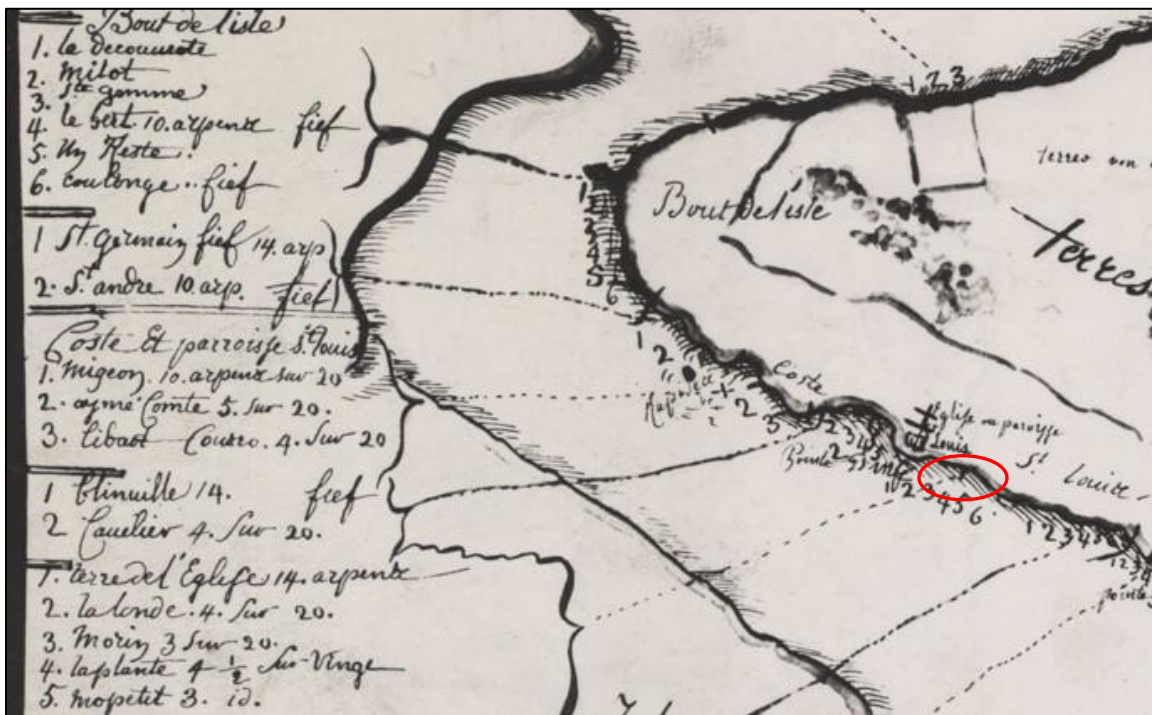 Bout de l'isle
1. la decouverte
2. milot
3. ste gemme
4. le bert. 10. arpents fief
5. Un Reste.
6. coulonge.. fief
1 St. germain fief 14. arp
2. St. andre 10. arp. fief
Coste Et parroisse st. Louis
1. migeon. 10. arpents sur 20
2. aymé Comte 5. Sur 20.
3. 4. Sur 20
1 14. fief
2 Cavelier 4. Sur 20.
1. terre de l'Eglise 14. arpents
2. la londe. 4. Sur 20.
3. Morin 3 Sur 20.
4. laplante 4 1/2 Sur Vinge
5. mopetit 3. id.
1 2 3
terres
Bout de l'isle
terres
1
4
5
6
1 2
Coste
2 3
Eglise ou paroisse
St Louis
St Louis
Pointe
1 2 3 4 5 6
1 2 3 4 5
pointe